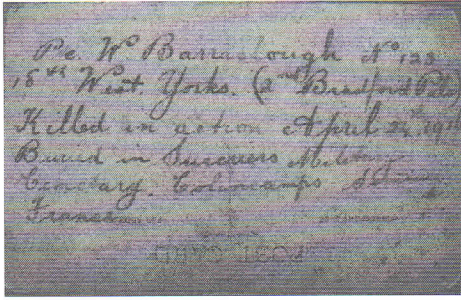 Pe. W. Barraclough No 123
18th West. Yorks. (2nd Bradford Pals)
Killed in action April
Buried in Sucriers Military
Cemetary. Colincamps
France
POST CARD